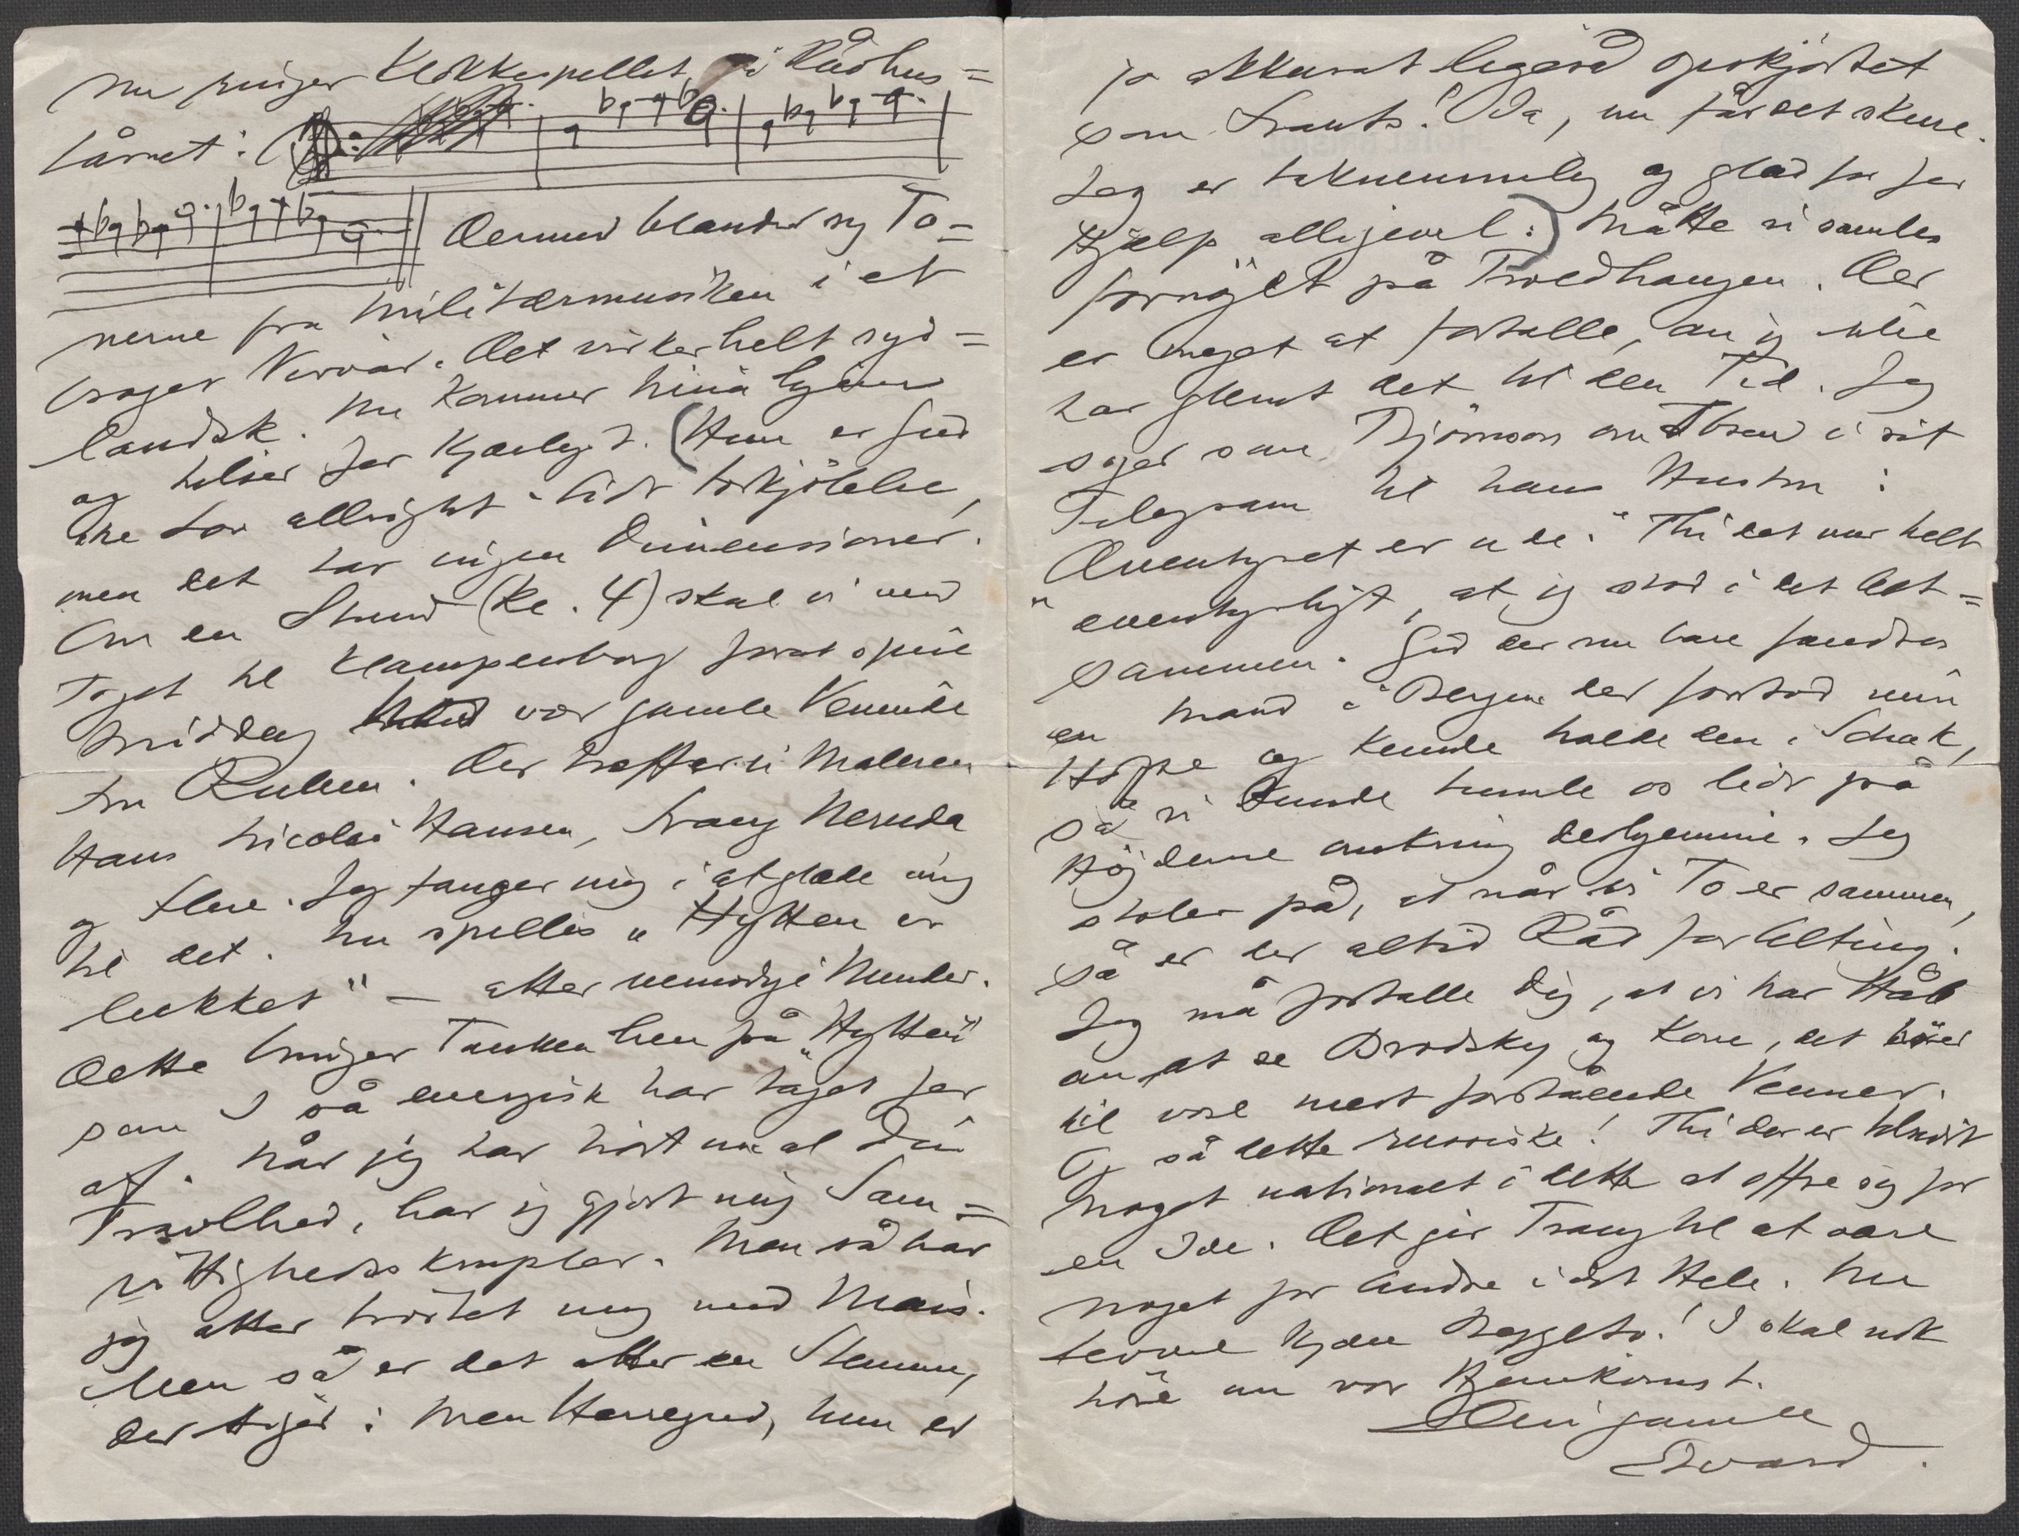 Nu ringer Klokkespillet i Rådhus=
tårnet:
Dermed blander sig To=
nerne fra Militærmusiken i et
broget Virvar. Det virker helt syd=
landsk. Nu kommer Nina hjem
og hilser Jer kjærligst. (Hun er Gud
ske Lov allright. Lidt forkjølelse,
men det har ingen Dimensioner.
Om en Stund (Kl. 4) skal vi med
Toget til Klampenborg forat spise
Middag hos vor gamle Veninde
Fru Ruben. Der træffer vi Maleren
Hans Nicolai Hansen, Franz Neruda
og flere. Jeg fanger mig i at glæde mig
til det. Nu spilles „Hytten er
lukket" — atter vemodige Minder.
Dette bringer Tanken hen på „Hytten"
som I så energisk har taget Jer
af. Når jeg har hørt om al Din
Travlhed, har jeg gjort mig Sam=
vittighedsskrupler. Men så har
jeg atter trøstet mig med Marie.
Men så er det atter en Stemme,
der siger: Men Herregud, hun er
jo akkurat ligeså opskjørtet
som Frants! Ja, nu får det skure.
Jeg er taknemmelig og glad for Jer
Hjælp alligevel:) Måtte vi samles
fornøjet på Troldhaugen. Der
er meget at fortælle, om jeg ikke
har glemt det til den Tid. Jeg
siger som Bjørnson om Ibsen i sit
Telegram til hans Hustru:
„Æventyret er ude." Thi det var helt
æventyrligt, at jeg stod i det Alt=
sammen. Gid der nu bare fandtes
en Mand i Bergen der forstod min
Hoste og kunde holde den i Schak,
så vi kunde tumle os lidt på
Højderne omkring derhjemme. Jeg
stoler på, at når vi To er sammen,
så er der altid Råd for Alting.
Jeg må fortælle Dig, at vi har Håb
om at se Brodsky og Kone, det hører
til vore mest forstående Venner.
Og så dette russiske! Thi der er
noget nationalt i dette at offre sig for
en Ide. Det gir Trang til at være
noget for Andre i det Hele. Nu
Levvel kjære Beggeto! I skal nok
høre om vor Hjemkomst.
Din gamle
Edvard.